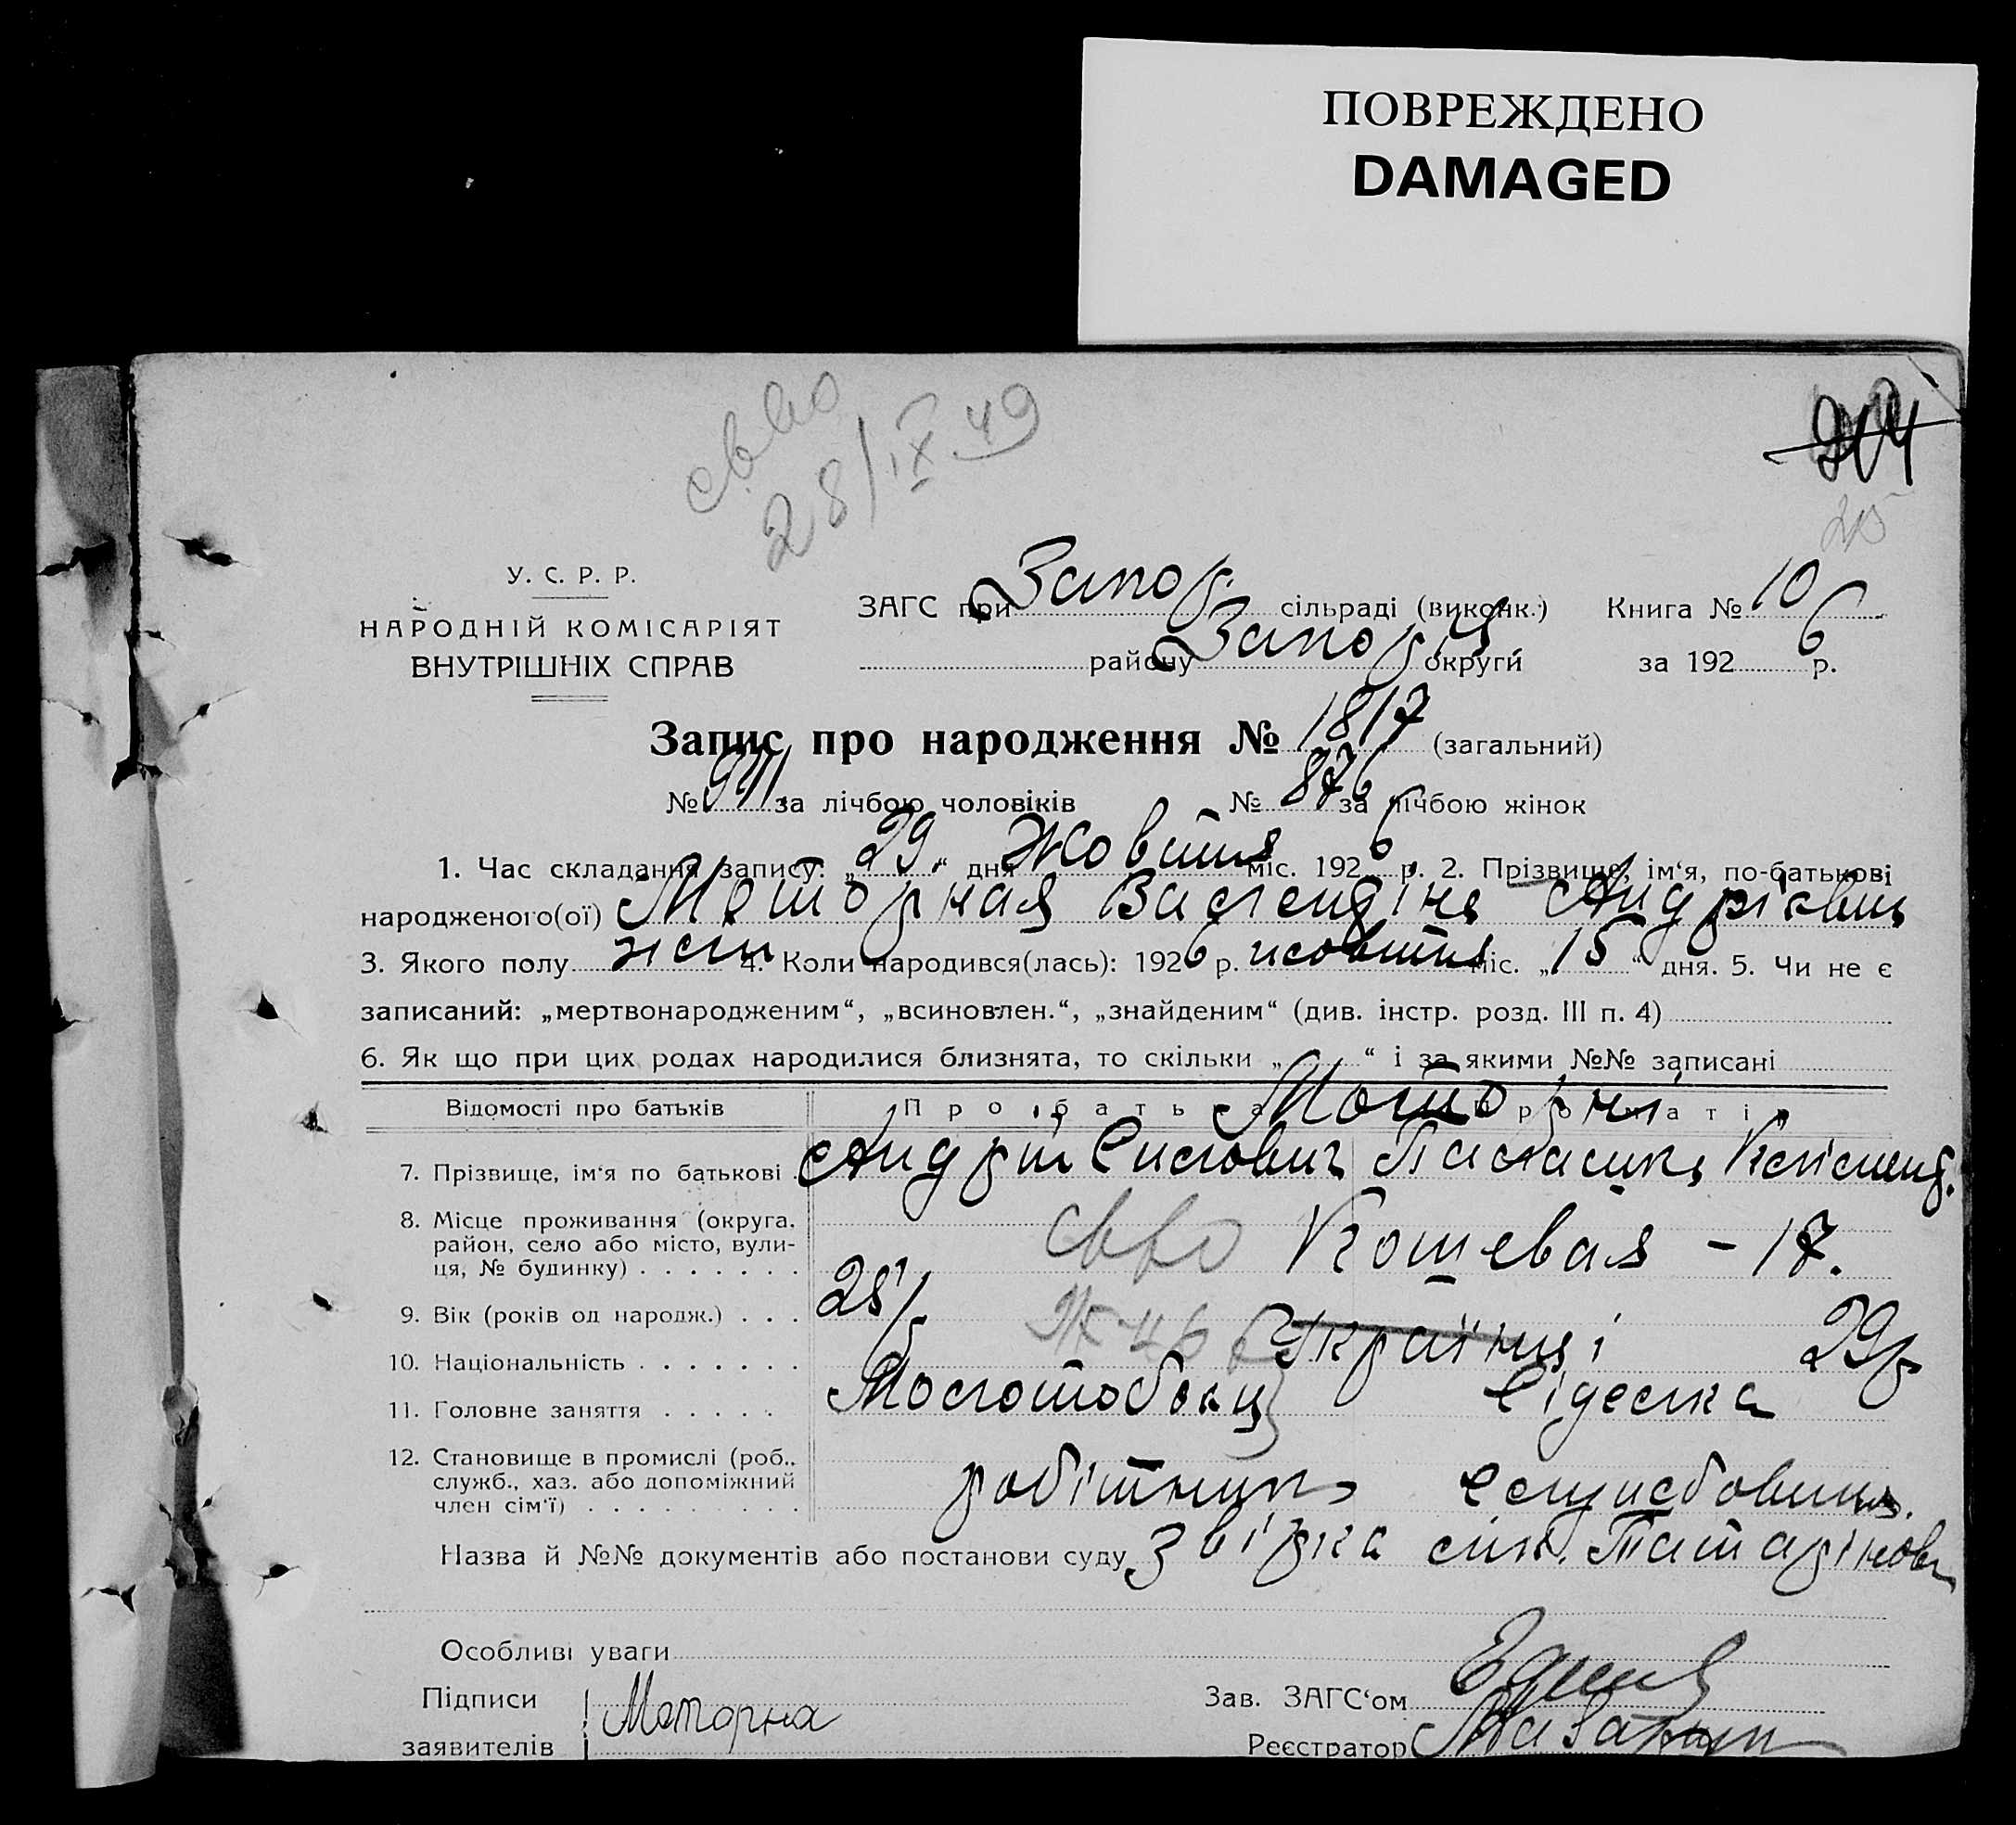 ПОВРЕЖДЕНО
DAMAGED
204
св-во
28/IX 49
У. С. Р. Р.
НАРОДНІЙ КОМІСАРІЯТ
ВНУТРІШНІХ СПРАВ
ЗАГС при Запор. сільраді (виконк.) Книга № 10
району Запор. округи за 1926 р.
Запис про народження № 1817 (загальний)
№ 941 за лічбою чоловіків № 876 за лічбою жінок
1. Час складання запису: „29“ дня Жовтня міс. 1926 р. 2. Прізвище, ім‘я, по-батькові
народженого(ої) Моторная Валентіна Андріївна
3. Якого полу жін 4. Коли народився(лась): 1926 р. жовтня міс. „15“ дня. 5. Чи не є
записаний: „мертвонародженим“, „всиновлен.“, „знайденим“ (див. інстр. розд. III п. 4)
6. Як що при цих родах народилися близнята, то скільки „ “ і за якими №№ записані
Відомості про батьків Про батька Про матір
Моторні
7. Прізвище, ім‘я по батькові Андрій Палажка
8. Місце проживання (округа. район, село або місто, вулиця, № будинку) св-во Кошевая – 17.
9. Вік (років од народж.) 28 р 29 р
10. Національність Українці
11. Головне заняття Молотобоєць
12. Становище в промислі (роб., служб., хаз. або допоміжний член сім‘ї) робітник службовиця
Назва й №№ документів або постанови суду звірка
Особливі уваги
Підписи Моторна Зав. ЗАГС‘ом
заявителів Реєстратор